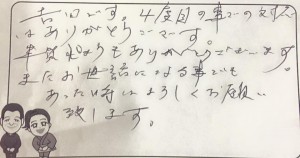 吉田です。4度目の事での対応
はありがとうございます。
いつもありがとうございます。
またお世話になる事でも
あった時はよろしくお願い
致します。